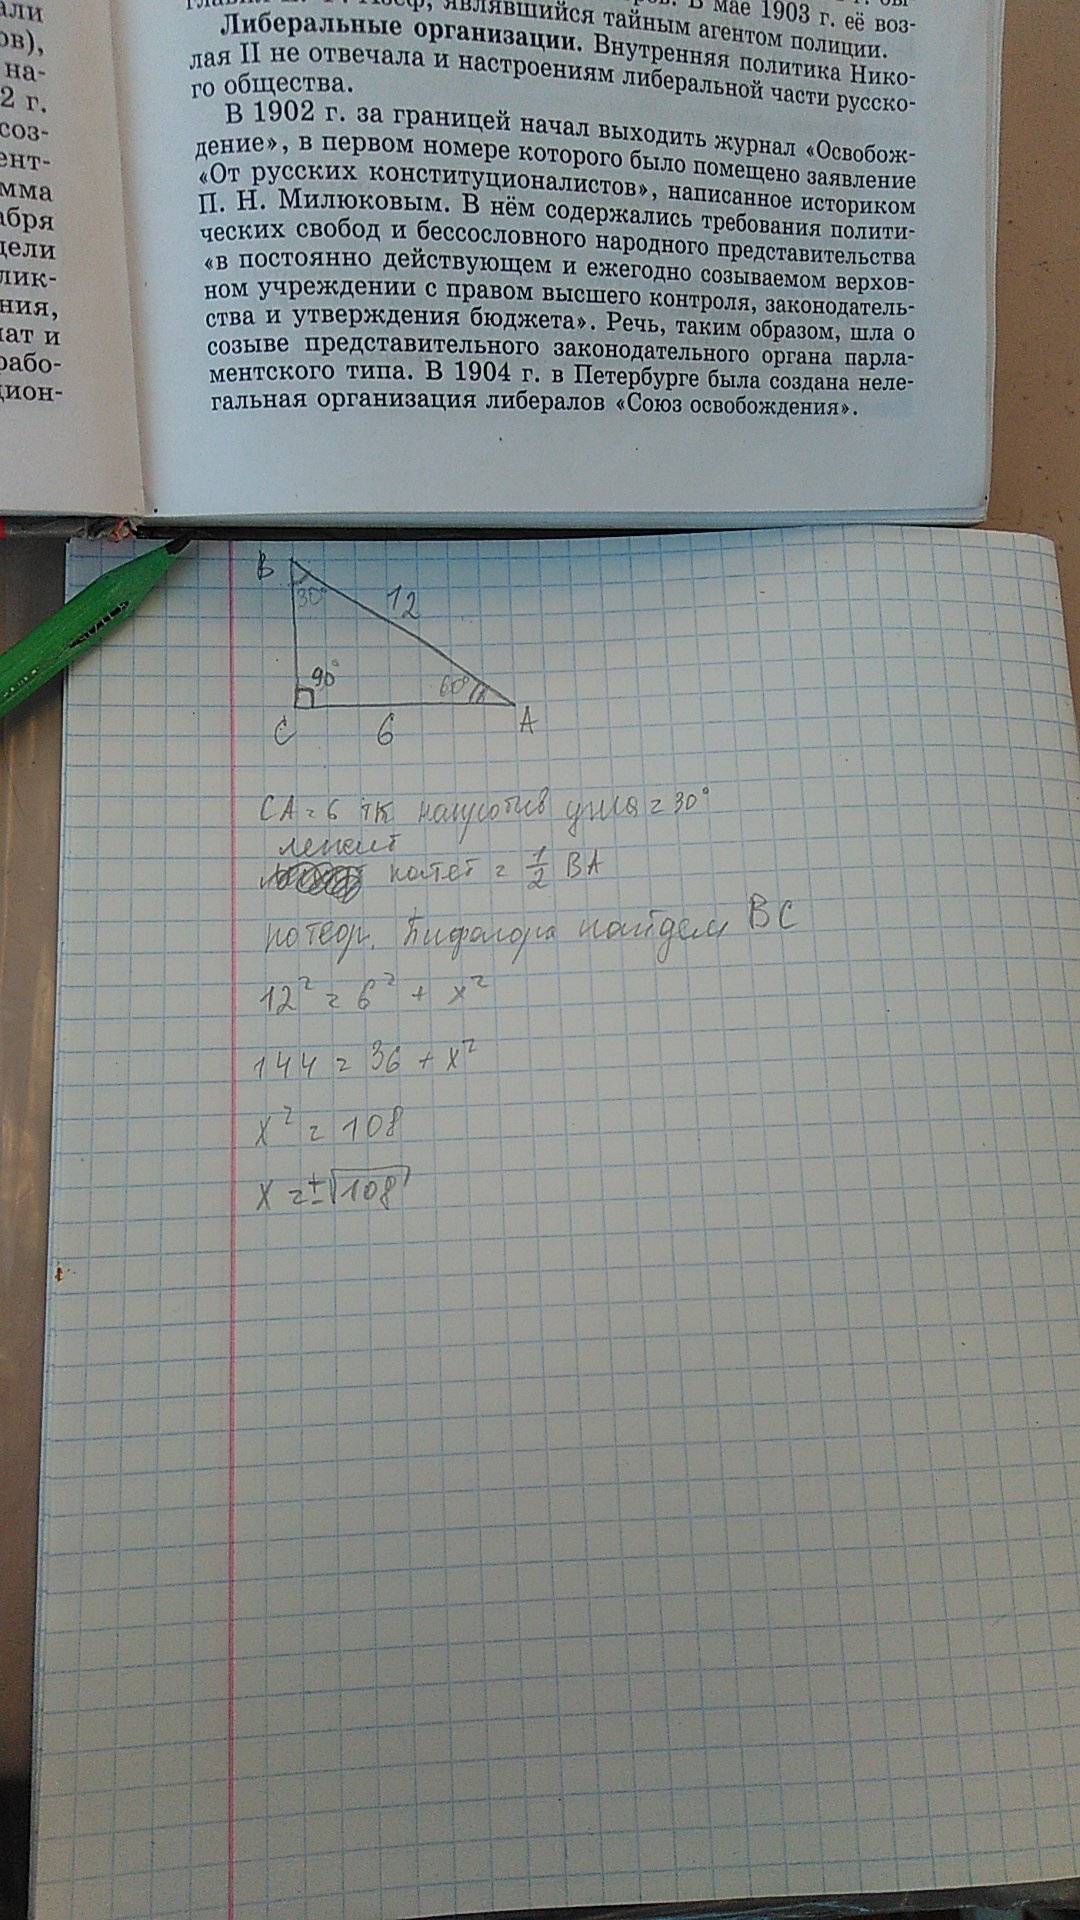 али
ов),
на-
2 г.
соз-
ент-
мма
абря
цели
лик-
ния,
ат и
рабо-
цион-
В мае 1903 г. её воз-
являвшийся тайным агентом полиции.
Либеральные организации. Внутренняя политика Нико-
лая II не отвечала и настроениям либеральной части русско-
го общества.
В 1902 г. за границей начал выходить журнал «Освобож-
дение», в первом номере которого было помещено заявление
«От русских конституционалистов», написанное историком
П. Н. Милюковым. В нём содержались требования полити-
ческих свобод и бессословного народного представительства
«в постоянно действующем и ежегодно созываемом верхов-
ном учреждении с правом высшего контроля, законодатель-
ства и утверждения бюджета». Речь, таким образом, шла о
созыве представительного законодательного органа парла-
ментского типа. В 1904 г. в Петербурге была создана неле-
гальная организация либералов «Союз освобождения».
B
30°
12
90°
60°
C
6
A
CA = 6 тк напротив угла = 30°
лежит
катет = 1/2 BA
по теор. Пифагора найдем BC
12² = 6² + x²
144 = 36 + x²
x² = 108
x = ±√108